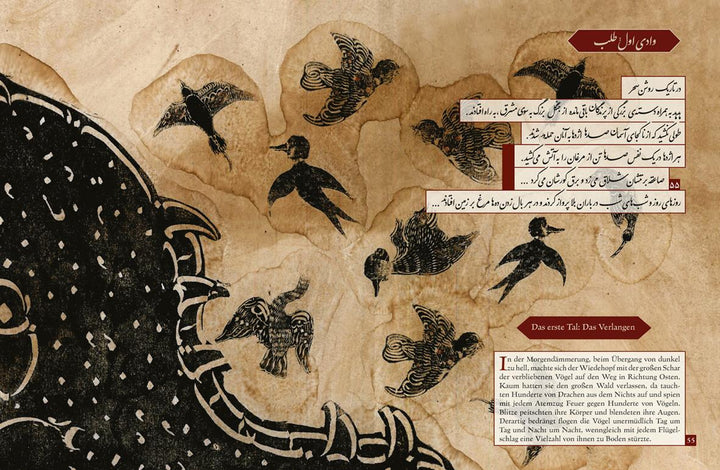 وادی اول: طلب
در تاریک روشن سحر
به همراه دسته‌ی بزرگی از پرندگان باقی مانده از جنگل بزرگ به سوی مشرق، به راه افتادند.
طولی نکشید که از ناکجای آسمان صدها اژدها به آنان حمله‌ور شدند.
هر اژدها در یک نفس صدها تن از مرغان را به آتش می‌کشید.
صاعقه بر تنشان شلاق می‌زد و برق کورشان می‌کرد ...
۵۵
روزهای روز و شب‌های شب در باران بلا پرواز کردند و در هر بال زدن ده‌ها مرغ بر زمین افتادند ...
Das erste Tal: Das Verlangen
In der Morgendämmerung, beim Übergang von dunkel
zu hell, machte sich der Wiedehopf mit der großen Schar
der verbliebenen Vögel auf den Weg in Richtung Osten.
Kaum hatten sie den großen Wald verlassen, da tauch-
ten Hunderte von Drachen aus dem Nichts auf und spien
mit jedem Atemzug Feuer gegen Hunderte von Vögeln.
Blitze peitschten ihre Körper und blendeten ihre Augen.
Derartig bedrängt flogen die Vögel unermüdlich Tag um
Tag und Nacht um Nacht, wenngleich mit jedem Flügel-
schlag eine Vielzahl von ihnen zu Boden stürzte.
55